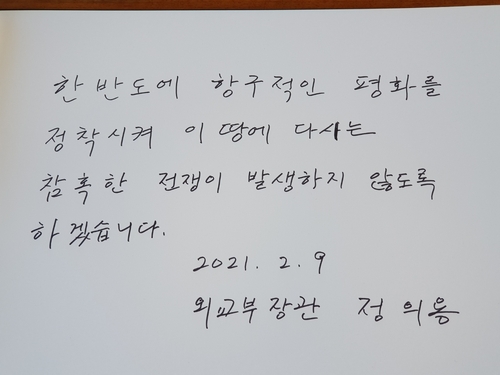 한반도에 항구적인 평화를
정착시켜 이 땅에 다시는
참혹한 전쟁이 발생하지 않도록
하겠습니다.
2021. 2. 9
외교부장관 정의용